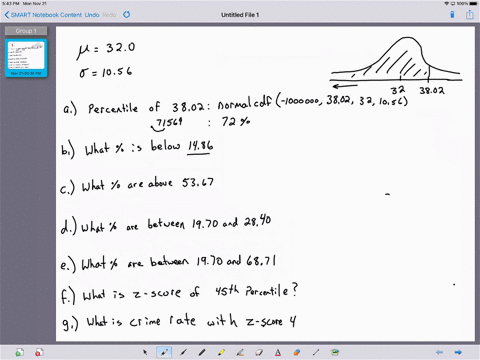 5:43 PM Mon Nov 21
SMART Notebook Content Undo Untitled File 1
Group 1
μ = 32.0
σ = 10.56
32 38.02
a.) Percentile of 38.02: normalcdf (-1000000, 38.02, 32, 10.56)
.71569 : 72%
b.) What % is below 14.86
c.) What % are above 53.67
d.) What % are between 19.70 and 28.40
e.) What % are between 19.70 and 68.71
f.) What is z-score of 45th Percentile?
g.) What is crime rate with z-score 4